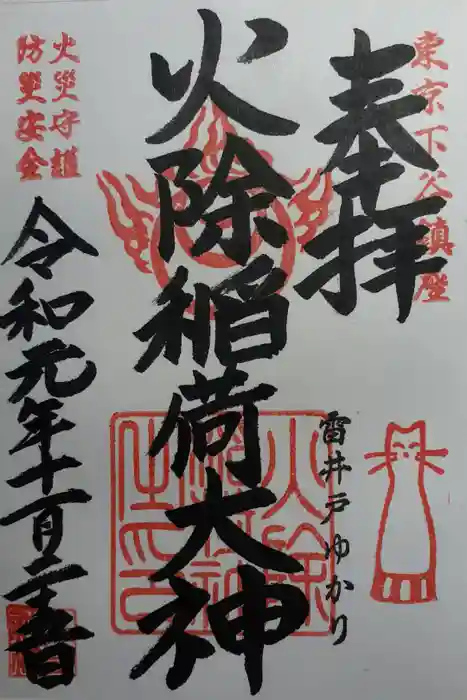 東京下谷鎮座
奉拝
火除稲荷大神
雷井戸ゆかり
火災守護
防災安全
令和元年十一月二十二日